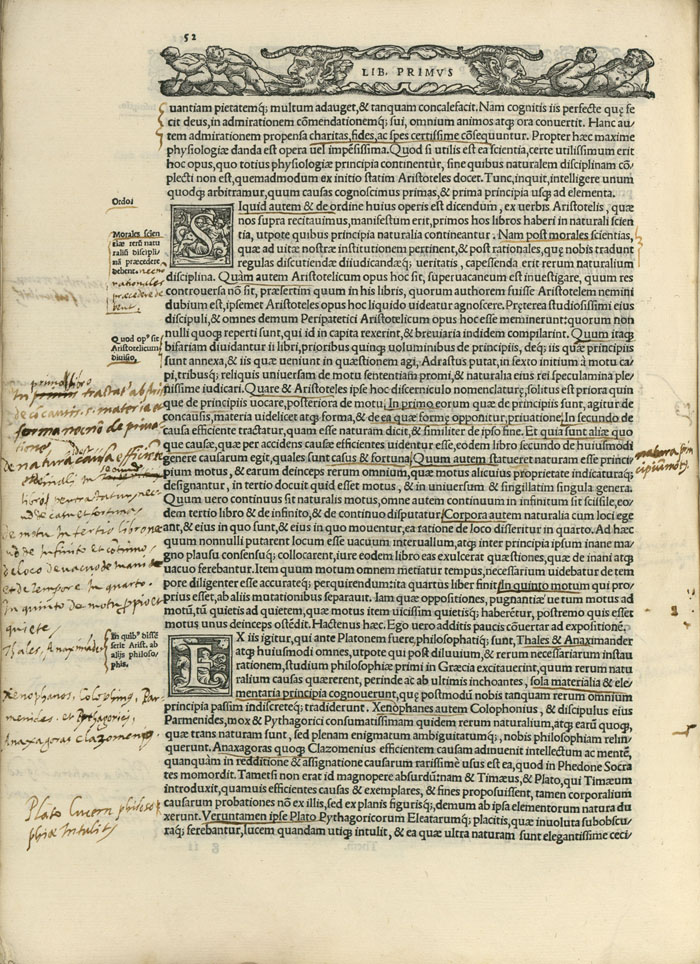 52
LIB. PRIMVS
uantiam pietatemq; multum adauget, & tanquam concalefacit. Nam cognitis iis perfecte quę fe
cit deus, in admirationem cōmendationemq; sui, omnium animos atq; ora conuertit. Hanc au
tem admirationem propensa charitas, fides, ac spes certissime cōsequuntur. Propter hæc maxime
physiologiæ danda est opera uel impēsissima. Quod si utilis est ea scientia, certe utilissimum erit
hoc opus, quo totius physiologiæ principia continentur, sine quibus naturalem disciplinam cō
plecti non est, quemadmodum ex initio statim Aristoteles docet. Tunc, inquit, intelligere unum
quodq; arbitramur, quum causas cognoscimus primas, & prima principia usq; ad elementa.
Ordo.
SIquid autem & de ordine huius operis est dicendum, ex uerbis Aristotelis, quæ
nos supra recitauimus, manifestum erit, primos hos libros haberi in naturali scien
tia, utpote quibus principia naturalia contineantur. Nam post morales scientias,
quæ ad uitæ nostræ institutionem pertinent, & post rationales, quę nobis tradunt
regulas discutiendæ diiudicandæq; ueritatis, capessenda erit rerum naturalium
disciplina. Quàm autem Aristotelicum opus hoc sit, superuacaneum est inuestigare, quum res
controuersa nō sit, præsertim quum in his libris, quorum authorem fuisse Aristotelem nemini
dubium est, ipsemet Aristoteles opus hoc liquido uideatur agnoscere. Pręterea studiosissimi eius
discipuli, & omnes demum Peripatetici Aristotelicum opus hoc esse meminerunt: quorum non
nulli quoq; reperti sunt, qui id in capita rexerint, & breuiaria indidem compilarint. Quum itaq;
bifariam diuidantur ii libri, prioribus quinq; uoluminibus de principiis, deq; iis quæ principiis
sunt annexa, & iis quæ ueniunt in quæstionem agi, Adrastus putat, in sexto initium à motu ca
pi, tribusq; reliquis uniuersam de motu sententiam promi, & naturalia eius rei speculamina ple
nissime iudicari. Quare & Aristoteles ipse hoc discerniculo nomenclaturę, solitus est priora quin
que de principiis uocare, posteriora de motu. In primo eorum quæ de principiis sunt, agitur de
concausis, materia uidelicet atq; forma, & de ea quæ formę opponitur, priuatione. In secundo de
causa efficiente tractatur, quam suam naturam dicit, & similiter de ipso fine. Et quia sunt aliæ quo
que causæ, quæ per accidens causæ efficientes uidentur esse, eodem libro secundo de huiusmodi
genere causarum egit, quales sunt casus & fortuna. Quum autem statueret naturam esse princi
pium motus, & earum deinceps rerum omnium, quæ motus alicuius proprietate indicaturq;
designantur, in tertio docuit quid esset motus, & in uniuersum & singillatim singula genera.
Quum uero continuus sit naturalis motus, omne autem continuum in infinitum sit scissile, eo
dem tertio libro & de infinito, & de continuo disputatur. Corpora autem naturalia cum loci ege
ant, & eius in quo sunt, & eius in quo mouentur, ea ratione de loco disseritur in quarto. Ad hæc
quum nonnulli putarent locum esse uacuum interuallum, atq; inter principia ipsum inane ma
gno plausu consensuq; collocarent, iure eodem libro eas exulcerat quæstiones, quæ de inani atq;
uacuo ferebantur. Item quum motum omnem metiatur tempus, necessarium uidebatur de tem
pore diligenter esse accurateq; perquirendum: ita quartus liber finit. In quinto motum qui pro
prius esset, ab aliis mutationibus separauit. Iam quæ oppositiones, pugnantiæue tum motus ad
motū, tū quietis ad quietem, quæ motus item uicissim quietisq; haberētur, postremo quis esset
motus unus deinceps ostēdit. Hactenus hæc. Ego uero additis paucis couertar ad expositionē.
Morales scien
tiæ rerū natu
raliū discipli
nā præcedere
debent.
Quod op⁹ sit
Aristotelicum
diuisio.
necnon
rationales
præcedere de
bent.
primo libro
EX iis igitur, qui ante Platonem fuere, philosophatiq; sunt, Thales & Anaximander
atq; huiusmodi omnes, utpote qui post diluuium, & rerum necessariarum instau
rationem, studium philosophiæ primi in Græcia excitauerint, quum rerum natu
ralium causas quærerent, perinde ac ab ultimis inchoantes, sola materialia & ele
mentaria principia cognouerunt, quę postmodū nobis tanquam rerum omnium
principia passim indiscreteq; tradiderunt. Xenophanes autem Colophonius, & discipulus eius
Parmenides, mox & Pythagorici consumatissimam quidem rerum naturalium, atq; earū quoq;
quæ trans naturam sunt, sed plenam enigmatum ambiguitatumq;, nobis philosophiam relin
querunt. Anaxagoras quoq; Clazomenius efficientem causam adinuenit intellectum ac mentē,
quanquàm in redditione & assignatione causarum rarissime usus est ea, quod in Phedone Socra
tes momordit. Tametsi non erat id magnopere absurdū: nam & Timæus, & Plato, qui Timæum
introduxit, quamuis efficientes causas & exemplares, & fines proposuissent, tamen corporalium
causarum probationes nō ex illis, sed ex planis figurisq;, demum ab ipsa elementorum natura du
xerunt. Veruntamen ipse Plato Pythagoricorum Eleatarumq; placitis, quæ inuoluta subobscu-
raq; ferebantur, lucem quandam utiq; intulit, & ea quæ ultra naturam sunt elegantissime ceci/
In quib⁹ disse
serit Arist. ab
aliis philoso/
phis.
de motu In tertio libro nec
nō de Infinito et cōtinuo
de loco de uacuo de inani
et de tempore In quarto.
In quinto de motu proprio et
quiete
Thales, Anaximader
Xenophanes, Colophoniꝰ, Par
menides, et Pythagorici,
Anaxagoras Clazomeniꝰ
Plato lucem philoso
phiæ Intulit
natura prin
cipium
g ii